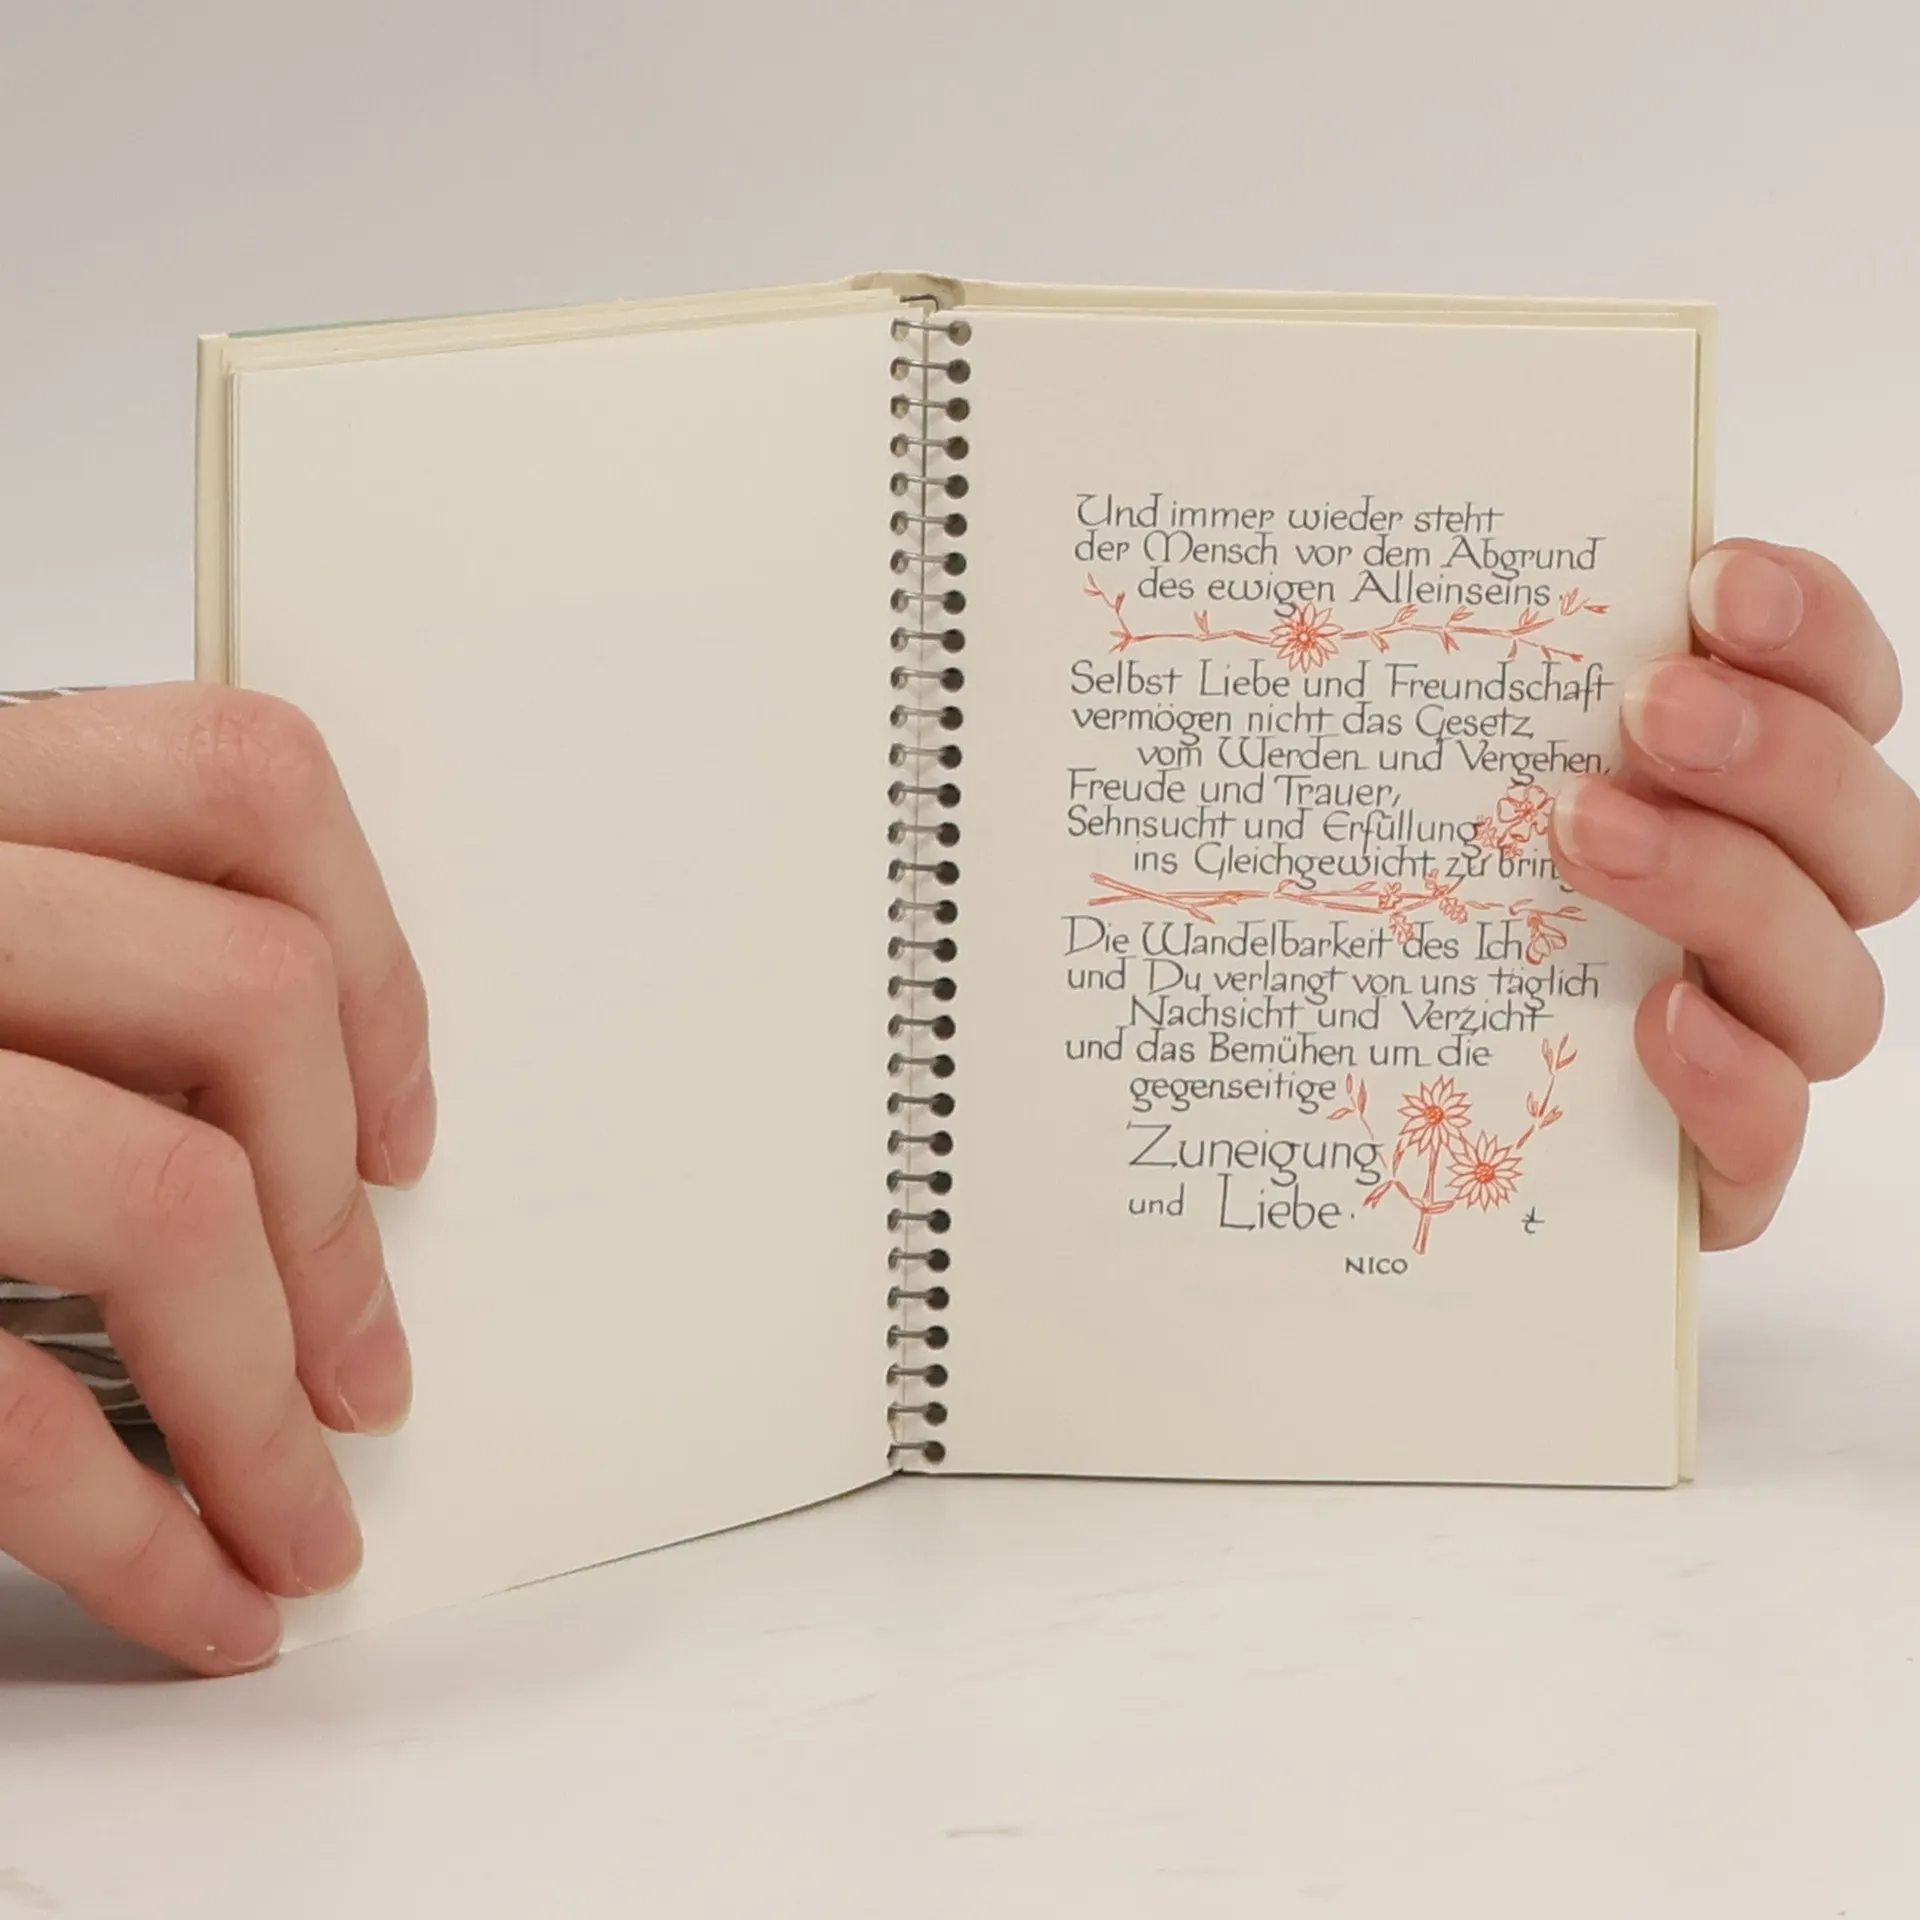 Und immer wieder steht
der Mensch vor dem Abgrund
des ewigen Alleinseins.
Selbst Liebe und Freundschaft
vermögen nicht das Gesetz
vom Werden und Vergehen,
Freude und Trauer,
Sehnsucht und Erfüllung
ins Gleichgewicht zu
Die Wandelbarkeit des Ich
und Du verlangt von uns täglich
Nachsicht und Verzicht
und das Bemühen um die
gegenseitige
Zuneigung
und Liebe.
NICO